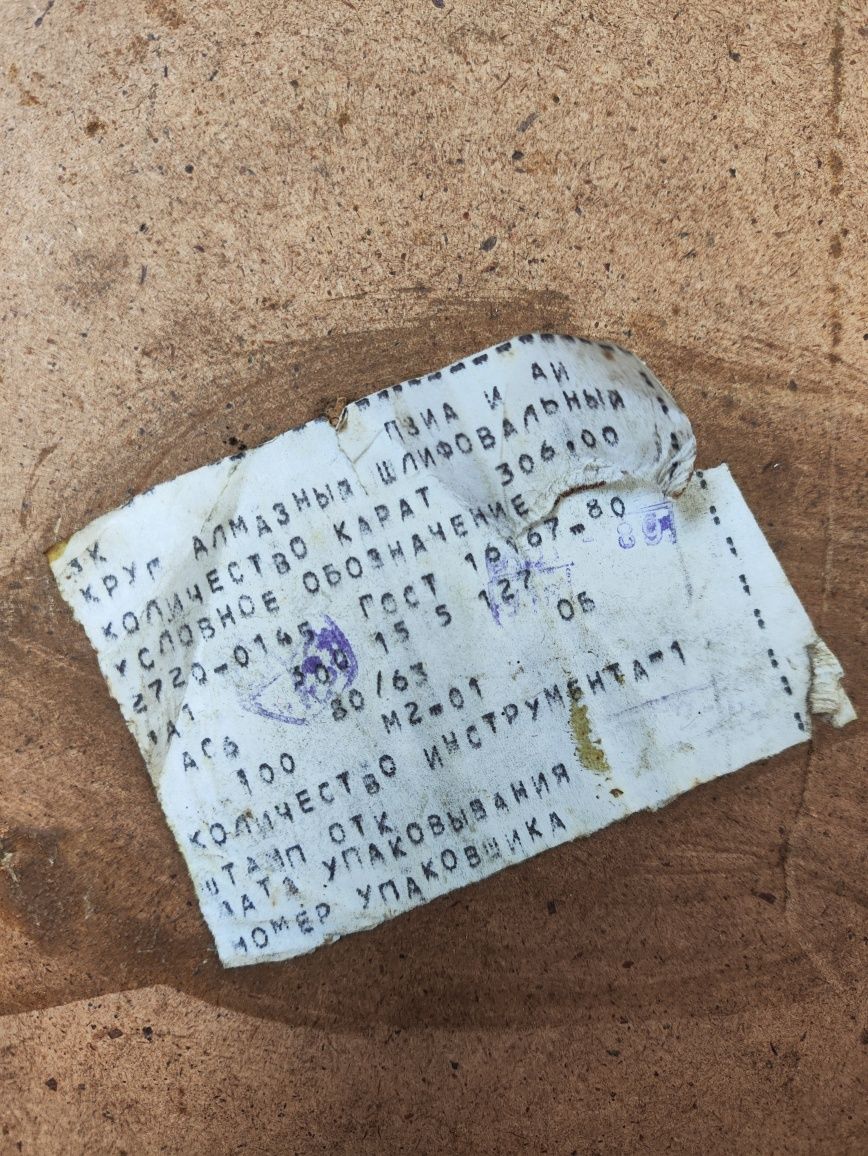 ЗК ПЗИА И АИ
КРУГ АЛМАЗНЫЙ ШЛИФОВАЛЬНЫЙ
КОЛИЧЕСТВО КАРАТ 306.00
УСЛОВНОЕ ОБОЗНАЧЕНИЕ
2720-0145 ГОСТ 16167-80
89
1А1 300 15 5 127
АС6 80/63 ОБ
100 М2-01
КОЛИЧЕСТВО ИНСТРУМЕНТА-1
ШТАМП ОТК
ДАТА УПАКОВЫВАНИЯ
НОМЕР УПАКОВЩИКА